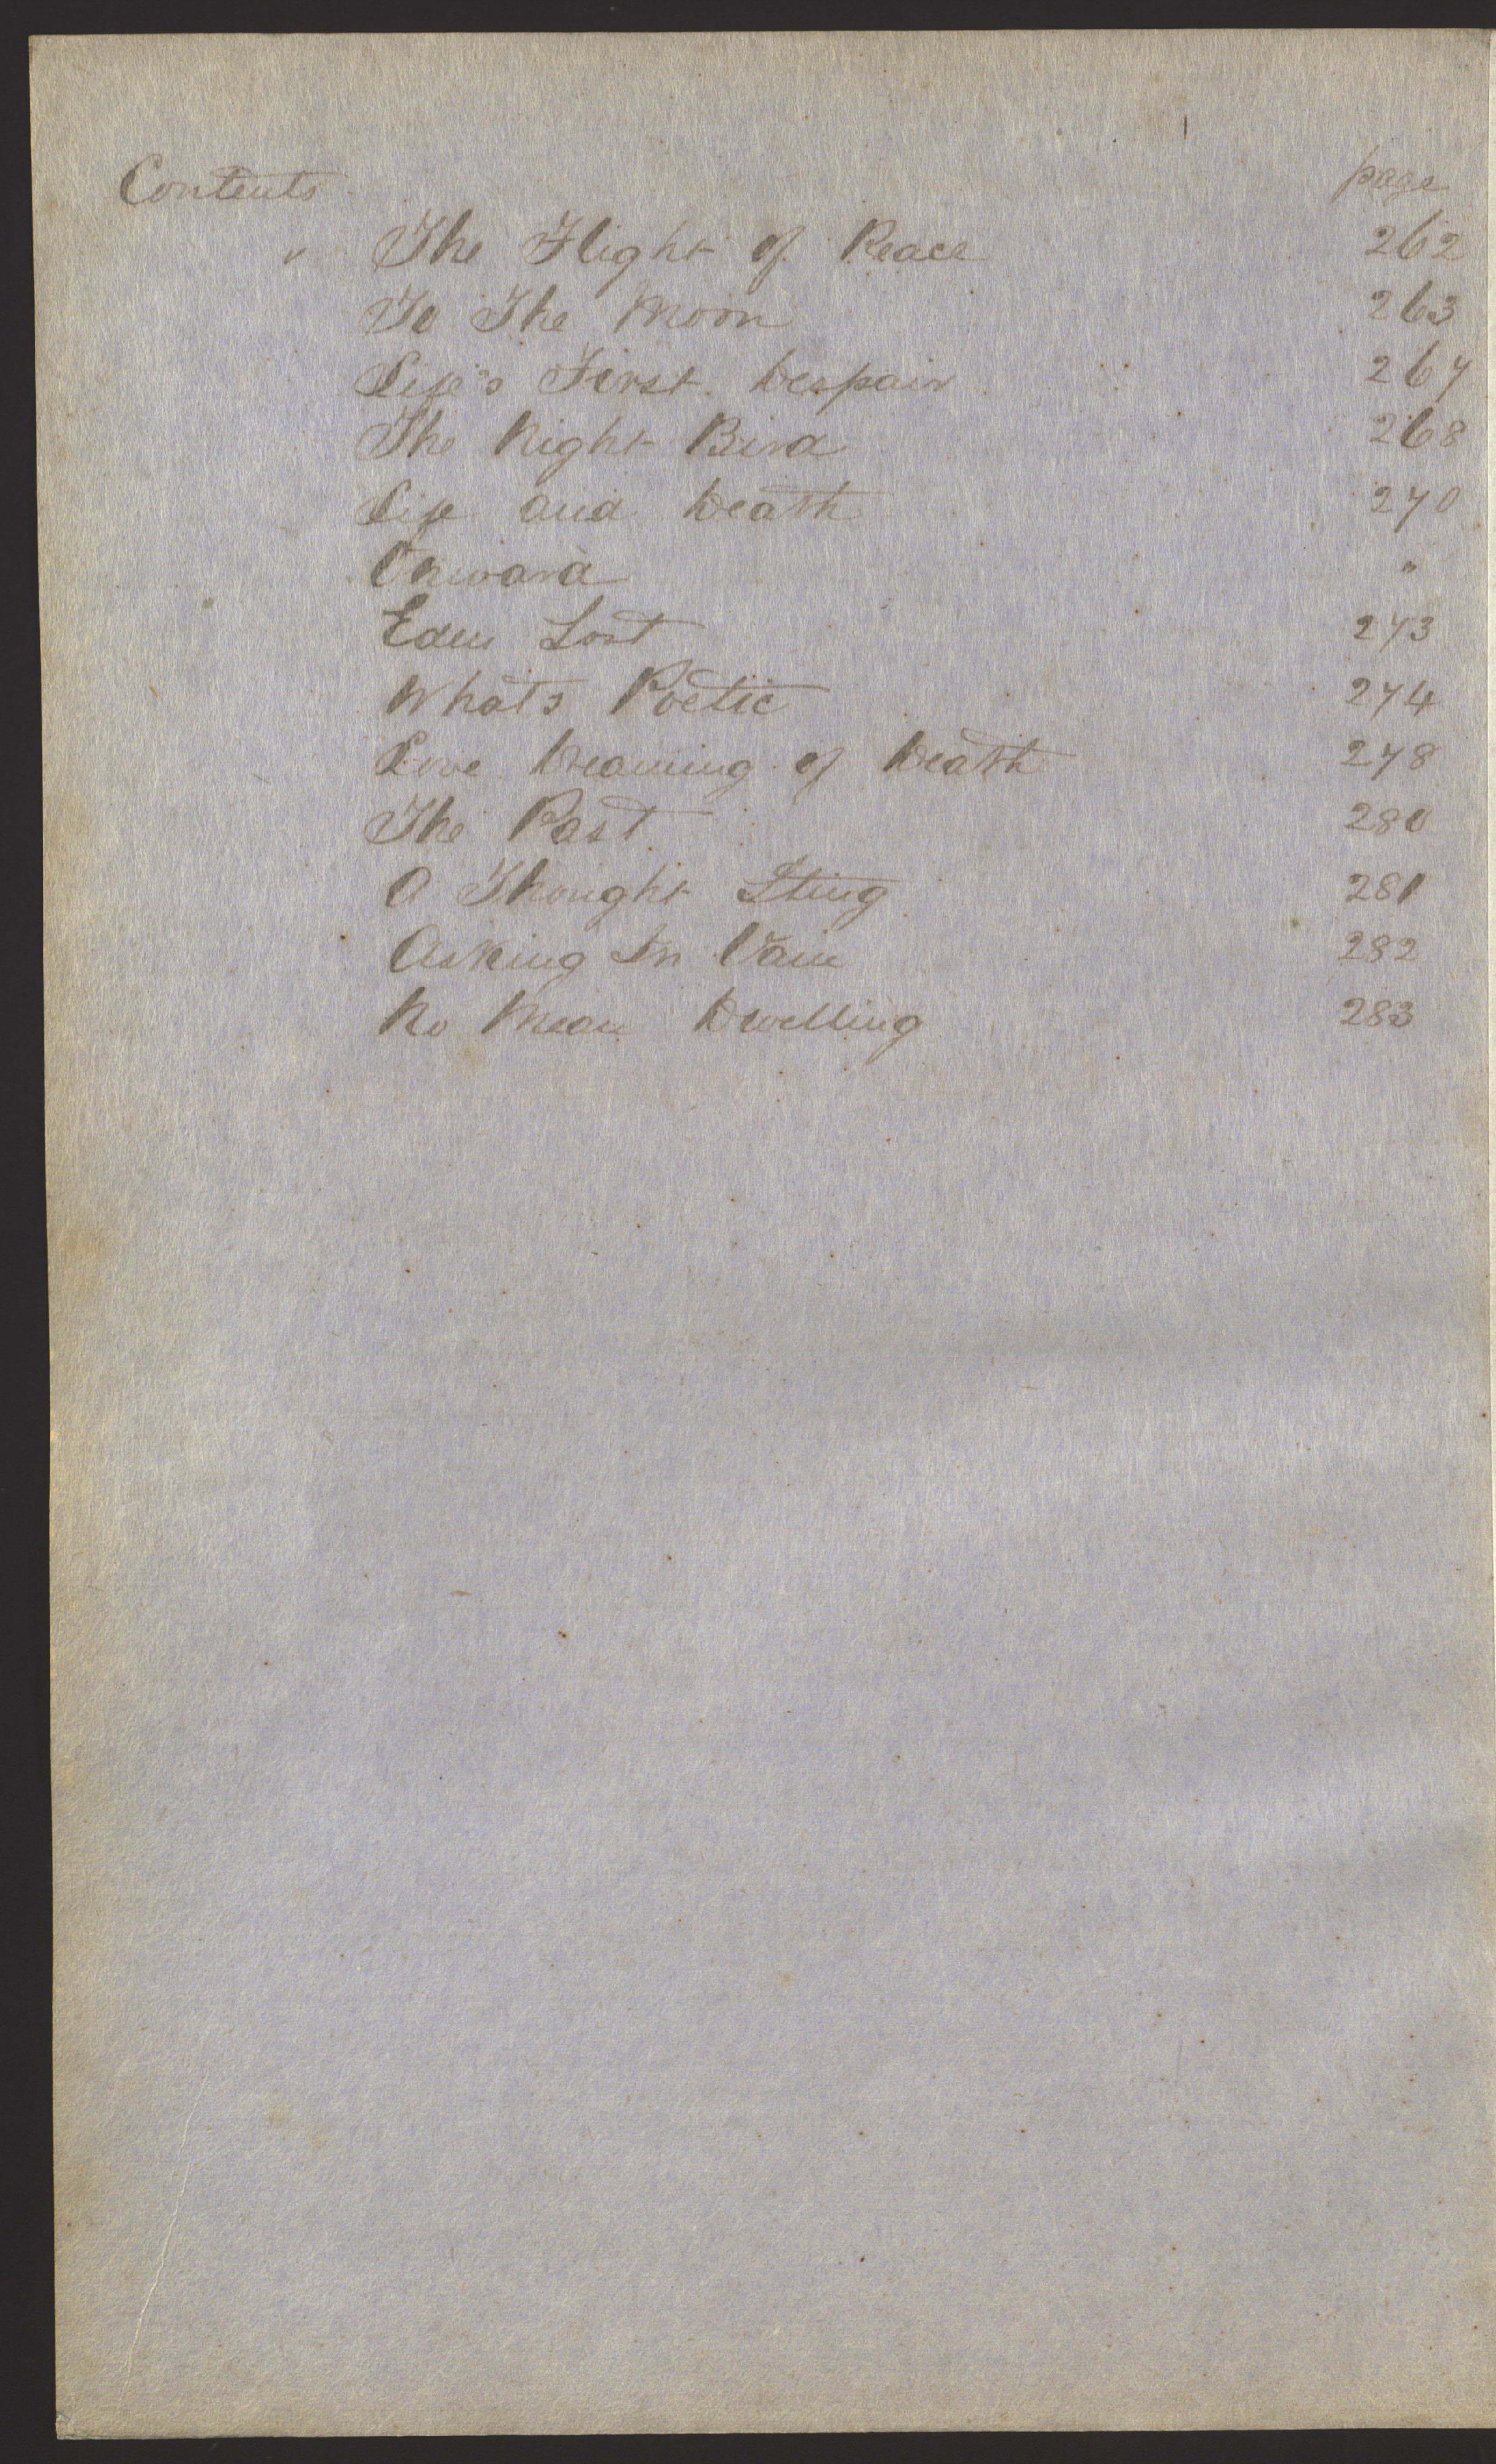 Contents page
" The Flight of Peace 262
To The Moon 263
Life's First Despair 267
The Night Bird 268
Life and Death 270
Onward "
Eden Lost 273
What's Poetic 274
Love Dreaming of Death 278
The Past 280
A Thought Sting 281
Asking In Vain 282
No Mean Dwelling 283